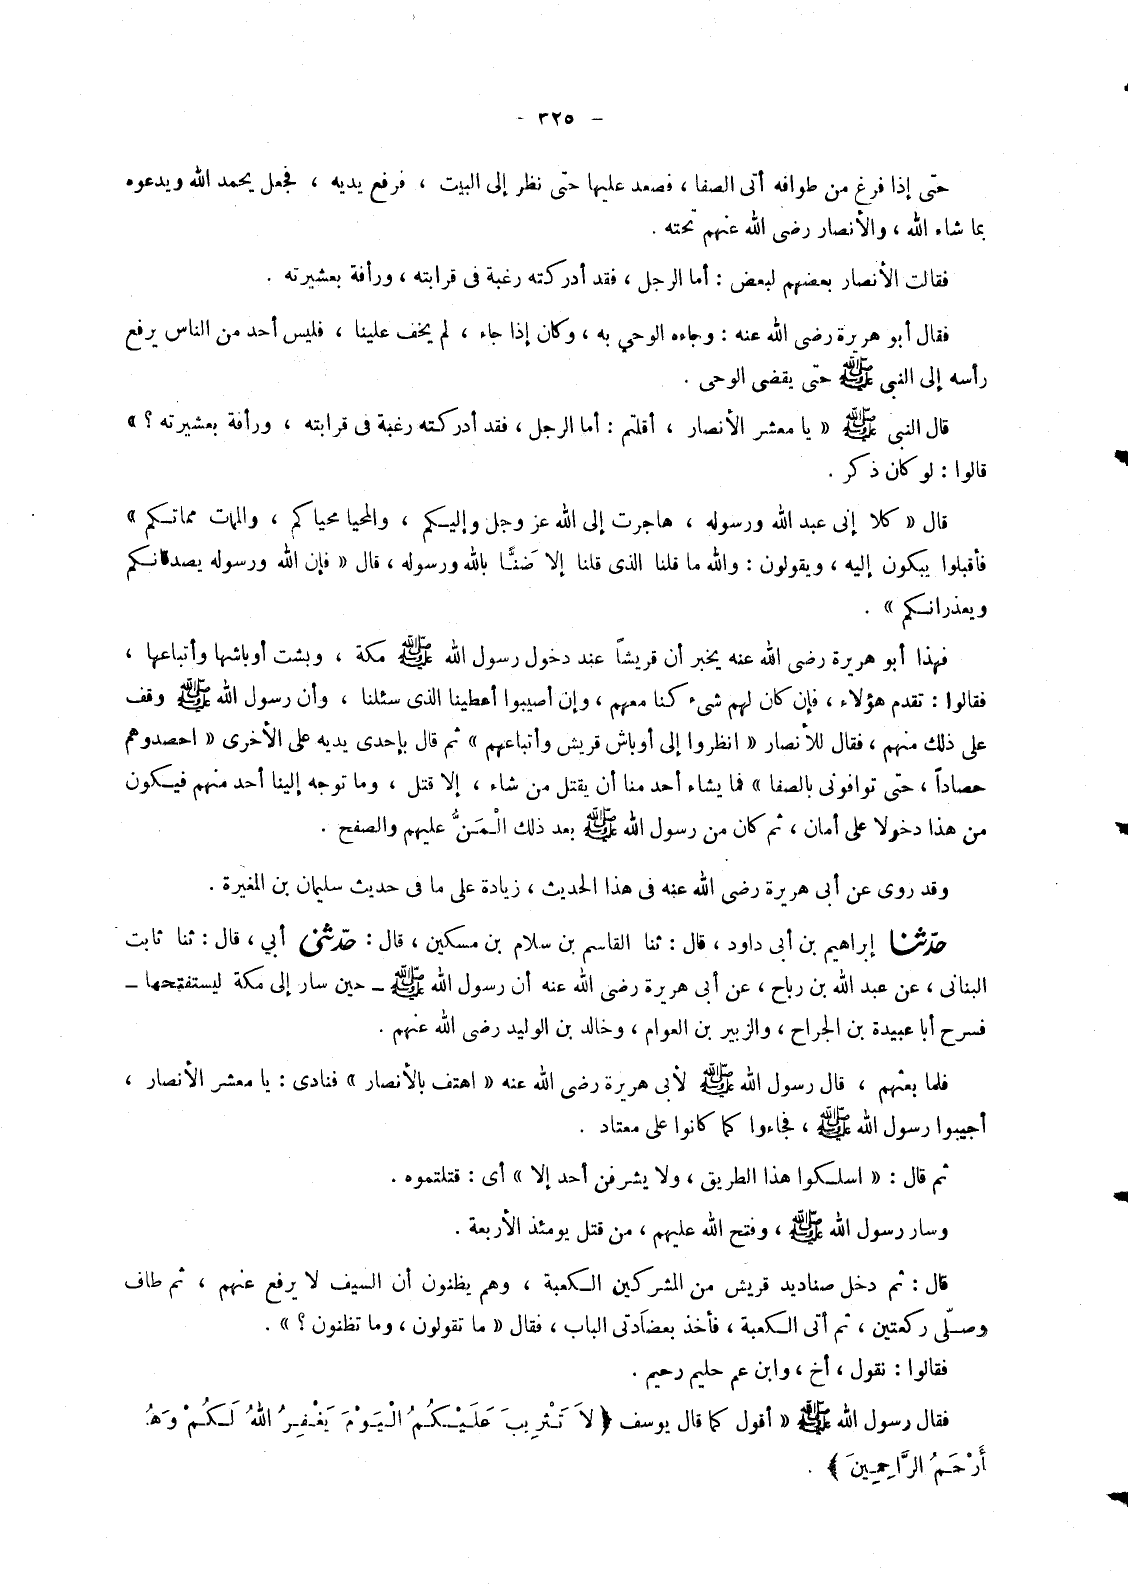 - ٣٢٥ -
حتى إذا فرغ من طوافه أتى الصفا ، فصعد عليها حتى نظر إلى البيت ، فرفع يديه ، فجعل يحمد الله ويدعوه
بما شاء الله ، والأنصار رضى الله عنهم تحته .
فقالت الأنصار بعضهم لبعض : أما الرجل ، فقد أدركته رغبة فى قرابته ، ورأفة بعشيرته .
فقال أبو هريرة رضى الله عنه : وجاءه الوحي به ، وكان إذا جاء ، لم يخف علينا ، فليس أحد من الناس يرفع
رأسه إلى النبى ﷺ حتى يقضى الوحى .
قال النبى ﷺ « يا معشر الأنصار ، أقلتم : أما الرجل ، فقد أدركته رغبة فى قرابته ، ورأفة بعشيرته ؟ »
قالوا : لو كان ذكر .
قال « كلا إنى عبد الله ورسوله ، هاجرت إلى الله عز وجل وإليكم ، والمحيا محياكم ، والمات مماتكم »
فأقبلوا يبكون إليه ، ويقولون : والله ما قلنا الذى قلنا إلا ضَنًّا بالله ورسوله ، قال « فإن الله ورسوله يصدقانكم
ويعذرانكم » .
فهذا أبو هريرة رضى الله عنه يخبر أن قريشاً عند دخول رسول الله ﷺ مكة ، وبشت أوباشها وأتباعها ،
فقالوا : تقدم هؤلاء ، فإن كان لهم شىء كنا معهم ، وإن أصيبوا أعطينا الذى سئلنا ، وأن رسول الله ﷺ وقف
على ذلك منهم ، فقال للأنصار « انظروا إلى أوباش قريش وأتباعهم » ثم قال بإحدى يديه على الأخرى « احصدوهم
حصاداً ، حتى توافونى بالصفا » فما يشاء أحد منا أن يقتل من شاء ، إلا قتل ، وما توجه إلينا أحد منهم فيكون
من هذا دخولا على أمان ، ثم كان من رسول الله ﷺ بعد ذلك الْمَنُّ عليهم والصفح .
وقد روى عن أبى هريرة رضى الله عنه فى هذا الحديث ، زيادة على ما فى حديث سليمان بن المغيرة .
حدّثنا إبراهيم بن أبى داود ، قال : ثنا القاسم بن سلام بن مسكين ، قال : حدّثنى أبي ، قال : ثنا ثابت
البنانى ، عن عبد الله بن رباح ، عن أبى هريرة رضى الله عنه أن رسول الله ﷺ – حين سار إلى مكة ليستفتحها –
فسرح أبا عبيدة بن الجراح ، والزبير بن العوام ، وخالد بن الوليد رضى الله عنهم .
فلما بعثهم ، قال رسول الله ﷺ لأبى هريرة رضى الله عنه « اهتف بالأنصار » فنادى : يا معشر الأنصار ،
أجيبوا رسول الله ﷺ ، فجاءوا كما كانوا على معتاد .
ثم قال : « اسلكوا هذا الطريق ، ولا يشرفن أحد إلا » أى : قتلتموه .
وسار رسول الله ﷺ ، وفتح الله عليهم ، من قتل يومئذ الأربعة .
قال : ثم دخل صناديد قريش من المشركين الكعبة ، وهم يظنون أن السيف لا يرفع عنهم ، ثم طاف
وصلّى ركعتين ، ثم أتى الكعبة ، فأخذ بعضاَدتى الباب ، فقال « ما تقولون ، وما تظنون ؟ » .
فقالوا : نقول ، أخ ، وابن عم حليم رحيم .
فقال رسول الله ﷺ « أقول كما قال يوسف ﴿ لاَ تَثْرِيبَ عَلَيْكُمُ الْيَوْمَ يَغْفِرُ اللهُ لَكُمْ وَهُ
أَرْحَمُ الرَّاحِمِينَ ﴾ .